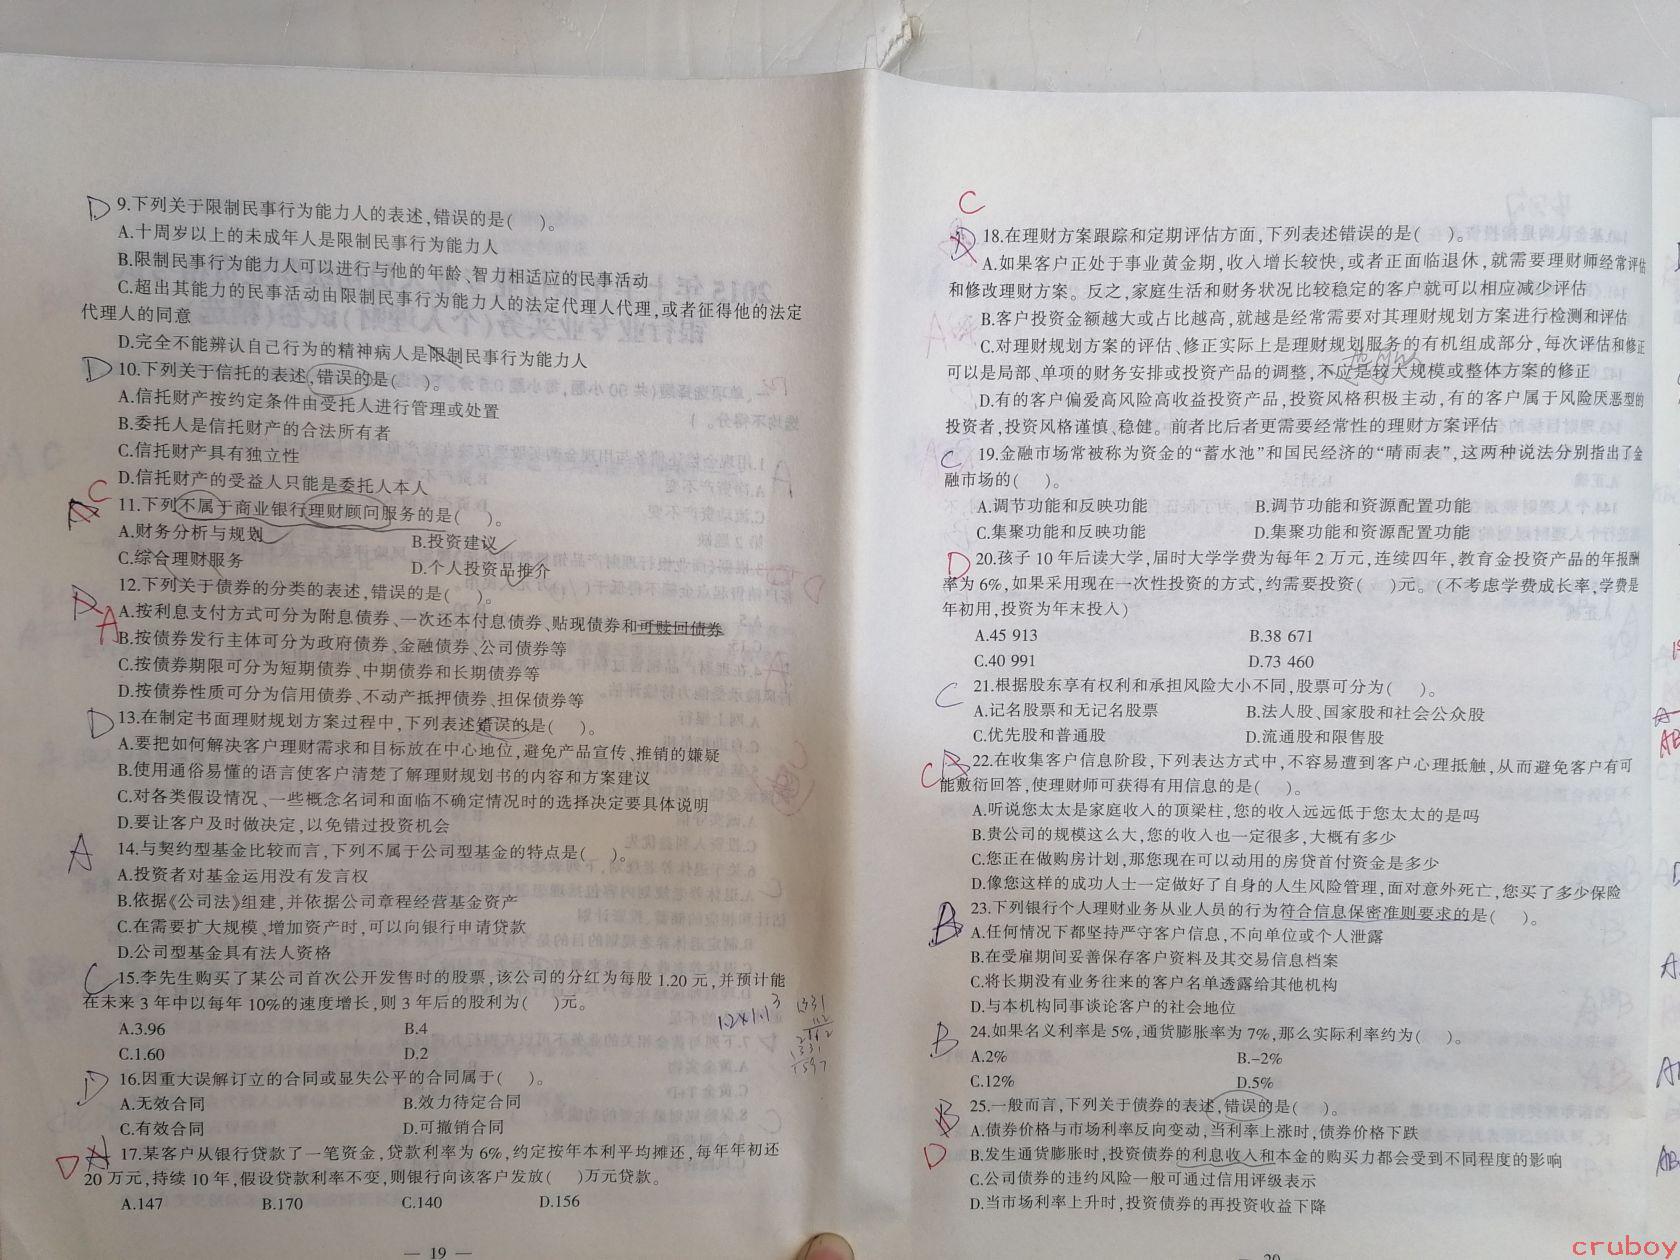 D 9.下列关于限制民事行为能力人的表述,错误的是(  )。
A.十周岁以上的未成年人是限制民事行为能力人
B.限制民事行为能力人可以进行与他的年龄、智力相适应的民事活动
C.超出其能力的民事活动由限制民事行为能力人的法定代理人代理,或者征得他的法定
代理人的同意
D.完全不能辨认自己行为的精神病人是限制民事行为能力人
D 10.下列关于信托的表述,错误的是(  )。
A.信托财产按约定条件由受托人进行管理或处置
B.委托人是信托财产的合法所有者
C.信托财产具有独立性
D.信托财产的受益人只能是委托人本人
C
11.下列不属于商业银行理财顾问服务的是(  )。
A.财务分析与规划 B.投资建议
C.综合理财服务 D.个人投资产品推介
12.下列关于债券的分类的表述,错误的是(  )。
A.按利息支付方式可分为附息债券、一次还本付息债券、贴现债券和可赎回债券
A
B.按债券发行主体可分为政府债券、金融债券、公司债券等
C.按债券期限可分为短期债券、中期债券和长期债券等
D.按债券性质可分为信用债券、不动产抵押债券、担保债券等
D 13.在制定书面理财规划方案过程中,下列表述错误的是(  )。
A.要把如何解决客户理财需求和目标放在中心地位,避免产品宣传、推销的嫌疑
B.使用通俗易懂的语言使客户清楚了解理财规划书的内容和方案建议
C.对各类假设情况、一些概念名词和面临不确定情况时的选择决定要具体说明
D.要让客户及时做决定,以免错过投资机会
A 14.与契约型基金比较而言,下列不属于公司型基金的特点是(  )。
A.投资者对基金运用没有发言权
B.依据《公司法》组建,并依据公司章程经营基金资产
C.在需要扩大规模、增加资产时,可以向银行申请贷款
D.公司型基金具有法人资格
C 15.李先生购买了某公司首次公开发售时的股票,该公司的分红为每股 1.20 元,并预计能
在未来 3 年中以每年 10%的速度增长,则 3 年后的股利为(  )元。
A.3.96 B.4
C.1.60 D.2
D 16.因重大误解订立的合同或显失公平的合同属于(  )。
A.无效合同 B.效力待定合同
C.有效合同 D.可撤销合同
D 17.某客户从银行贷款了一笔资金,贷款利率为 6%,约定按年本利平均摊还,每年年初还
20 万元,持续 10 年,假设贷款利率不变,则银行向该客户发放(  )万元贷款。
A.147 B.170 C.140 D.156
— 19 —
C
18.在理财方案跟踪和定期评估方面,下列表述错误的是(  )。
A.如果客户正处于事业黄金期,收入增长较快,或者正面临退休,就需要理财师经常评估
和修改理财方案。反之,家庭生活和财务状况比较稳定的客户就可以相应减少评估
B.客户投资金额越大或占比越高,就越是经常需要对其理财规划方案进行检测和评估
C.对理财规划方案的评估、修正实际上是理财规划服务的有机组成部分,每次评估和修正
可以是局部、单项的财务安排或投资产品的调整,不应是较大规模或整体方案的修正
D.有的客户偏爱高风险高收益投资产品,投资风格积极主动,有的客户属于风险厌恶型的
投资者,投资风格谨慎、稳健。前者比后者更需要经常性的理财方案评估
C 19.金融市场常被称为资金的“蓄水池”和国民经济的“晴雨表”,这两种说法分别指出了金
融市场的(  )。
A.调节功能和反映功能 B.调节功能和资源配置功能
C.集聚功能和反映功能 D.集聚功能和资源配置功能
D 20.孩子 10 年后读大学,届时大学学费为每年 2 万元,连续四年,教育金投资产品的年报酬
率为 6%,如果采用现在一次性投资的方式,约需要投资(  )元。(不考虑学费成长率,学费是
年初用,投资为年末投入)
A.45 913 B.38 671
C.40 991 D.73 460
C 21.根据股东享有权利和承担风险大小不同,股票可分为(  )。
A.记名股票和无记名股票 B.法人股、国家股和社会公众股
C.优先股和普通股 D.流通股和限售股
C 22.在收集客户信息阶段,下列表达方式中,不容易遭到客户心理抵触,从而避免客户有可
能敷衍回答,使理财师可获得有用信息的是(  )。
A.听说您太太是家庭收入的顶梁柱,您的收入远远低于您太太的是吗
B.贵公司的规模这么大,您的收入也一定很多,大概有多少
C.您正在做购房计划,那您现在可以动用的房贷首付资金是多少
D.像您这样的成功人士一定做好了自身的人生风险管理,面对意外死亡,您买了多少保险
B 23.下列银行个人理财业务从业人员的行为符合信息保密准则要求的是(  )。
A.任何情况下都坚持严守客户信息,不向单位或个人泄露
B.在受雇期间妥善保存客户资料及其交易信息档案
C.将长期没有业务往来的客户名单透露给其他机构
D.与本机构同事谈论客户的社会地位
B 24.如果名义利率是 5%,通货膨胀率为 7%,那么实际利率约为(  )。
A.2% B.-2%
C.12% D.5%
25.一般而言,下列关于债券的表述,错误的是(  )。
A.债券价格与市场利率反向变动,当利率上涨时,债券价格下跌
D B.发生通货膨胀时,投资债券的利息收入和本金的购买力都会受到不同程度的影响
C.公司债券的违约风险一般可通过信用评级表示
D.当市场利率上升时,投资债券的再投资收益下降
cruboy